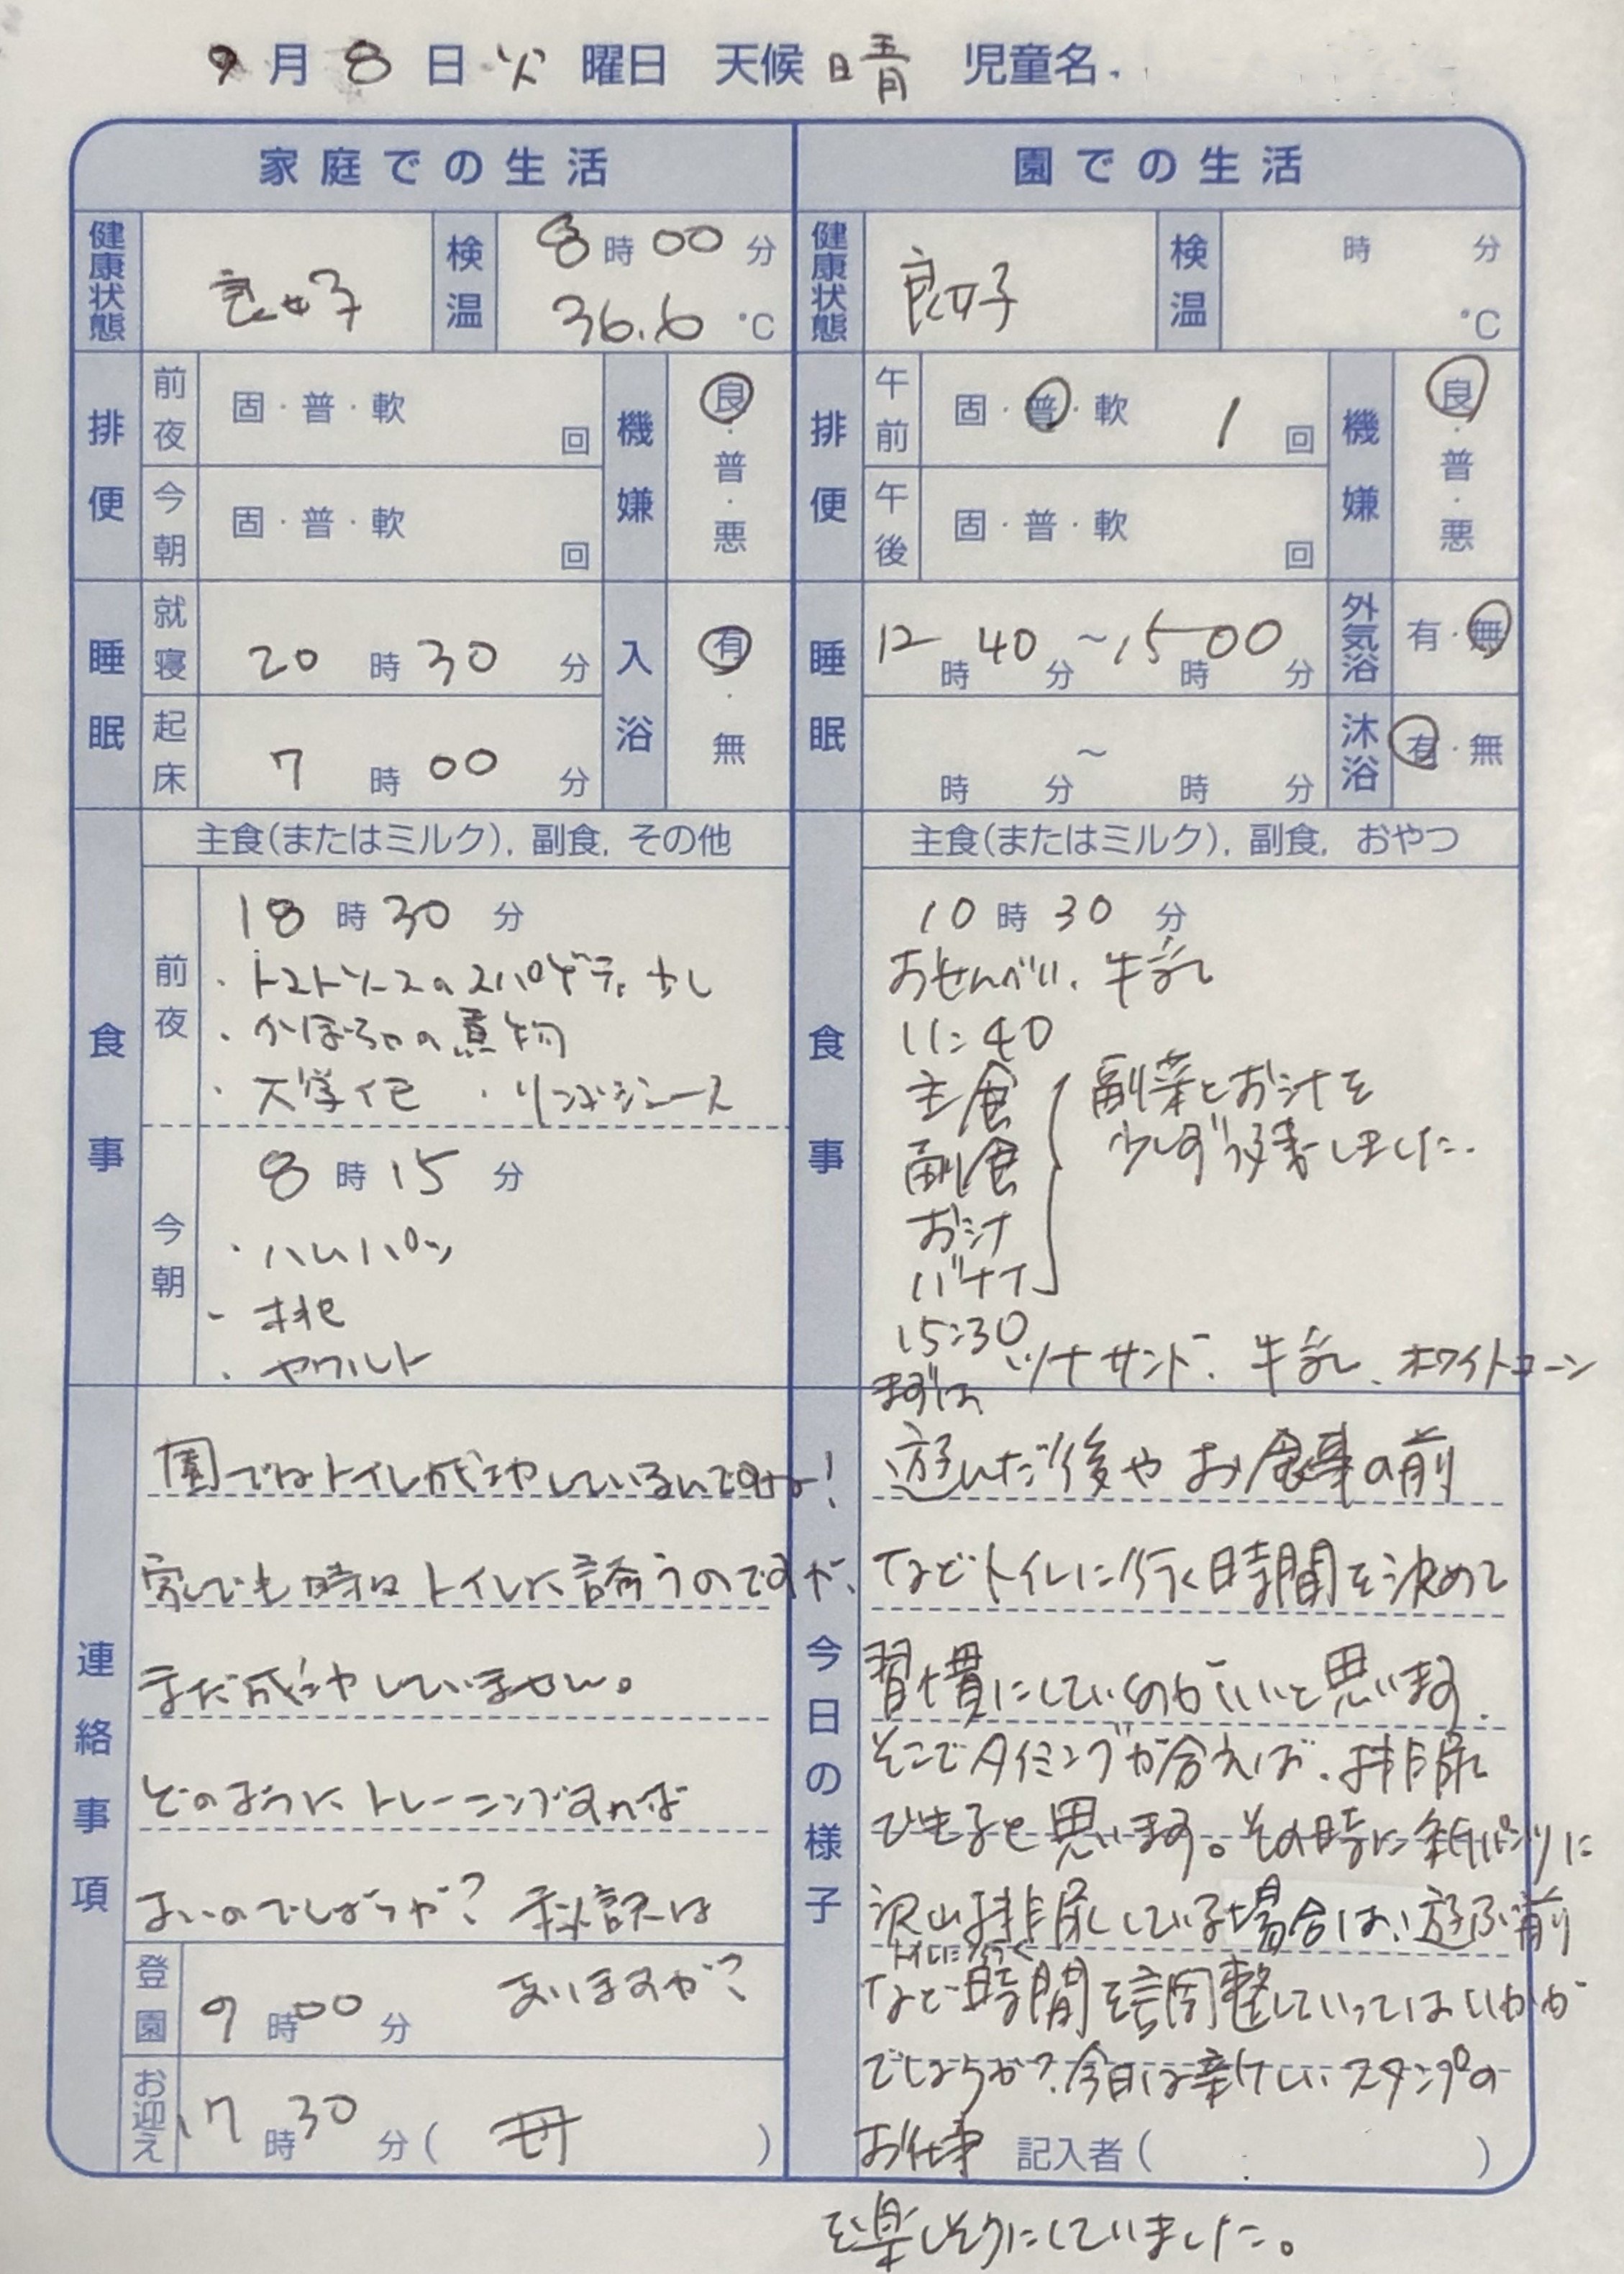 9月8日火曜日 天候 晴 児童名
家庭での生活
健康状態 良好 検温 8時00分
36.6℃
排便 前夜 固・普・軟 回 機嫌 良・普・悪
今朝 固・普・軟 回
睡眠 就寝 20時30分 入浴 有・無
起床 7時00分
食事 主食(またはミルク), 副食, その他
前夜 18時30分
・トマトソースのスパゲティ少し
・かぼちゃの煮物
・大学イモ ・リンゴジュース
今朝 8時15分
・ハムパン
・桃
・ヤクルト
連絡事項
園ではトイレ成功しているんですね!
家でも時々トイレに誘うのですが、
まだ成功していません。
どのようにトレーニングすれば
よいのでしょうか? 秘訣は
ありますか?
登園 9時00分
お迎え 17時30分(母)
園での生活
健康状態 良好 検温 時 分
℃
排便 午前 固・普・軟 1回 機嫌 良・普・悪
午後 固・普・軟 回
睡眠 12時40分~15時00分 外気浴 有・無
時 分~ 時 分 沐浴 有・無
食事 主食(またはミルク), 副食, おやつ
10時30分
おせんべい、牛乳
11:40
主食 副菜とお汁を
副食 少しずつ残しました.
お汁
バナナ
15:30 ツナサンド、牛乳、ホワイトコーン
今日の様子
まずは
遊んだ後や お食事の前
などトイレに行く時間を決めて
習慣にしていくのがいいと思います.
そこでタイミングが合えば、排尿
できると思います。その時に紙パンツに
沢山排尿している場合は、遊ぶ前
トイレに行く
など時間を調整していってはいかが
でしょうか?今日は新しいスタンプの
お仕事 記入者( )
を楽しそうにしていました。